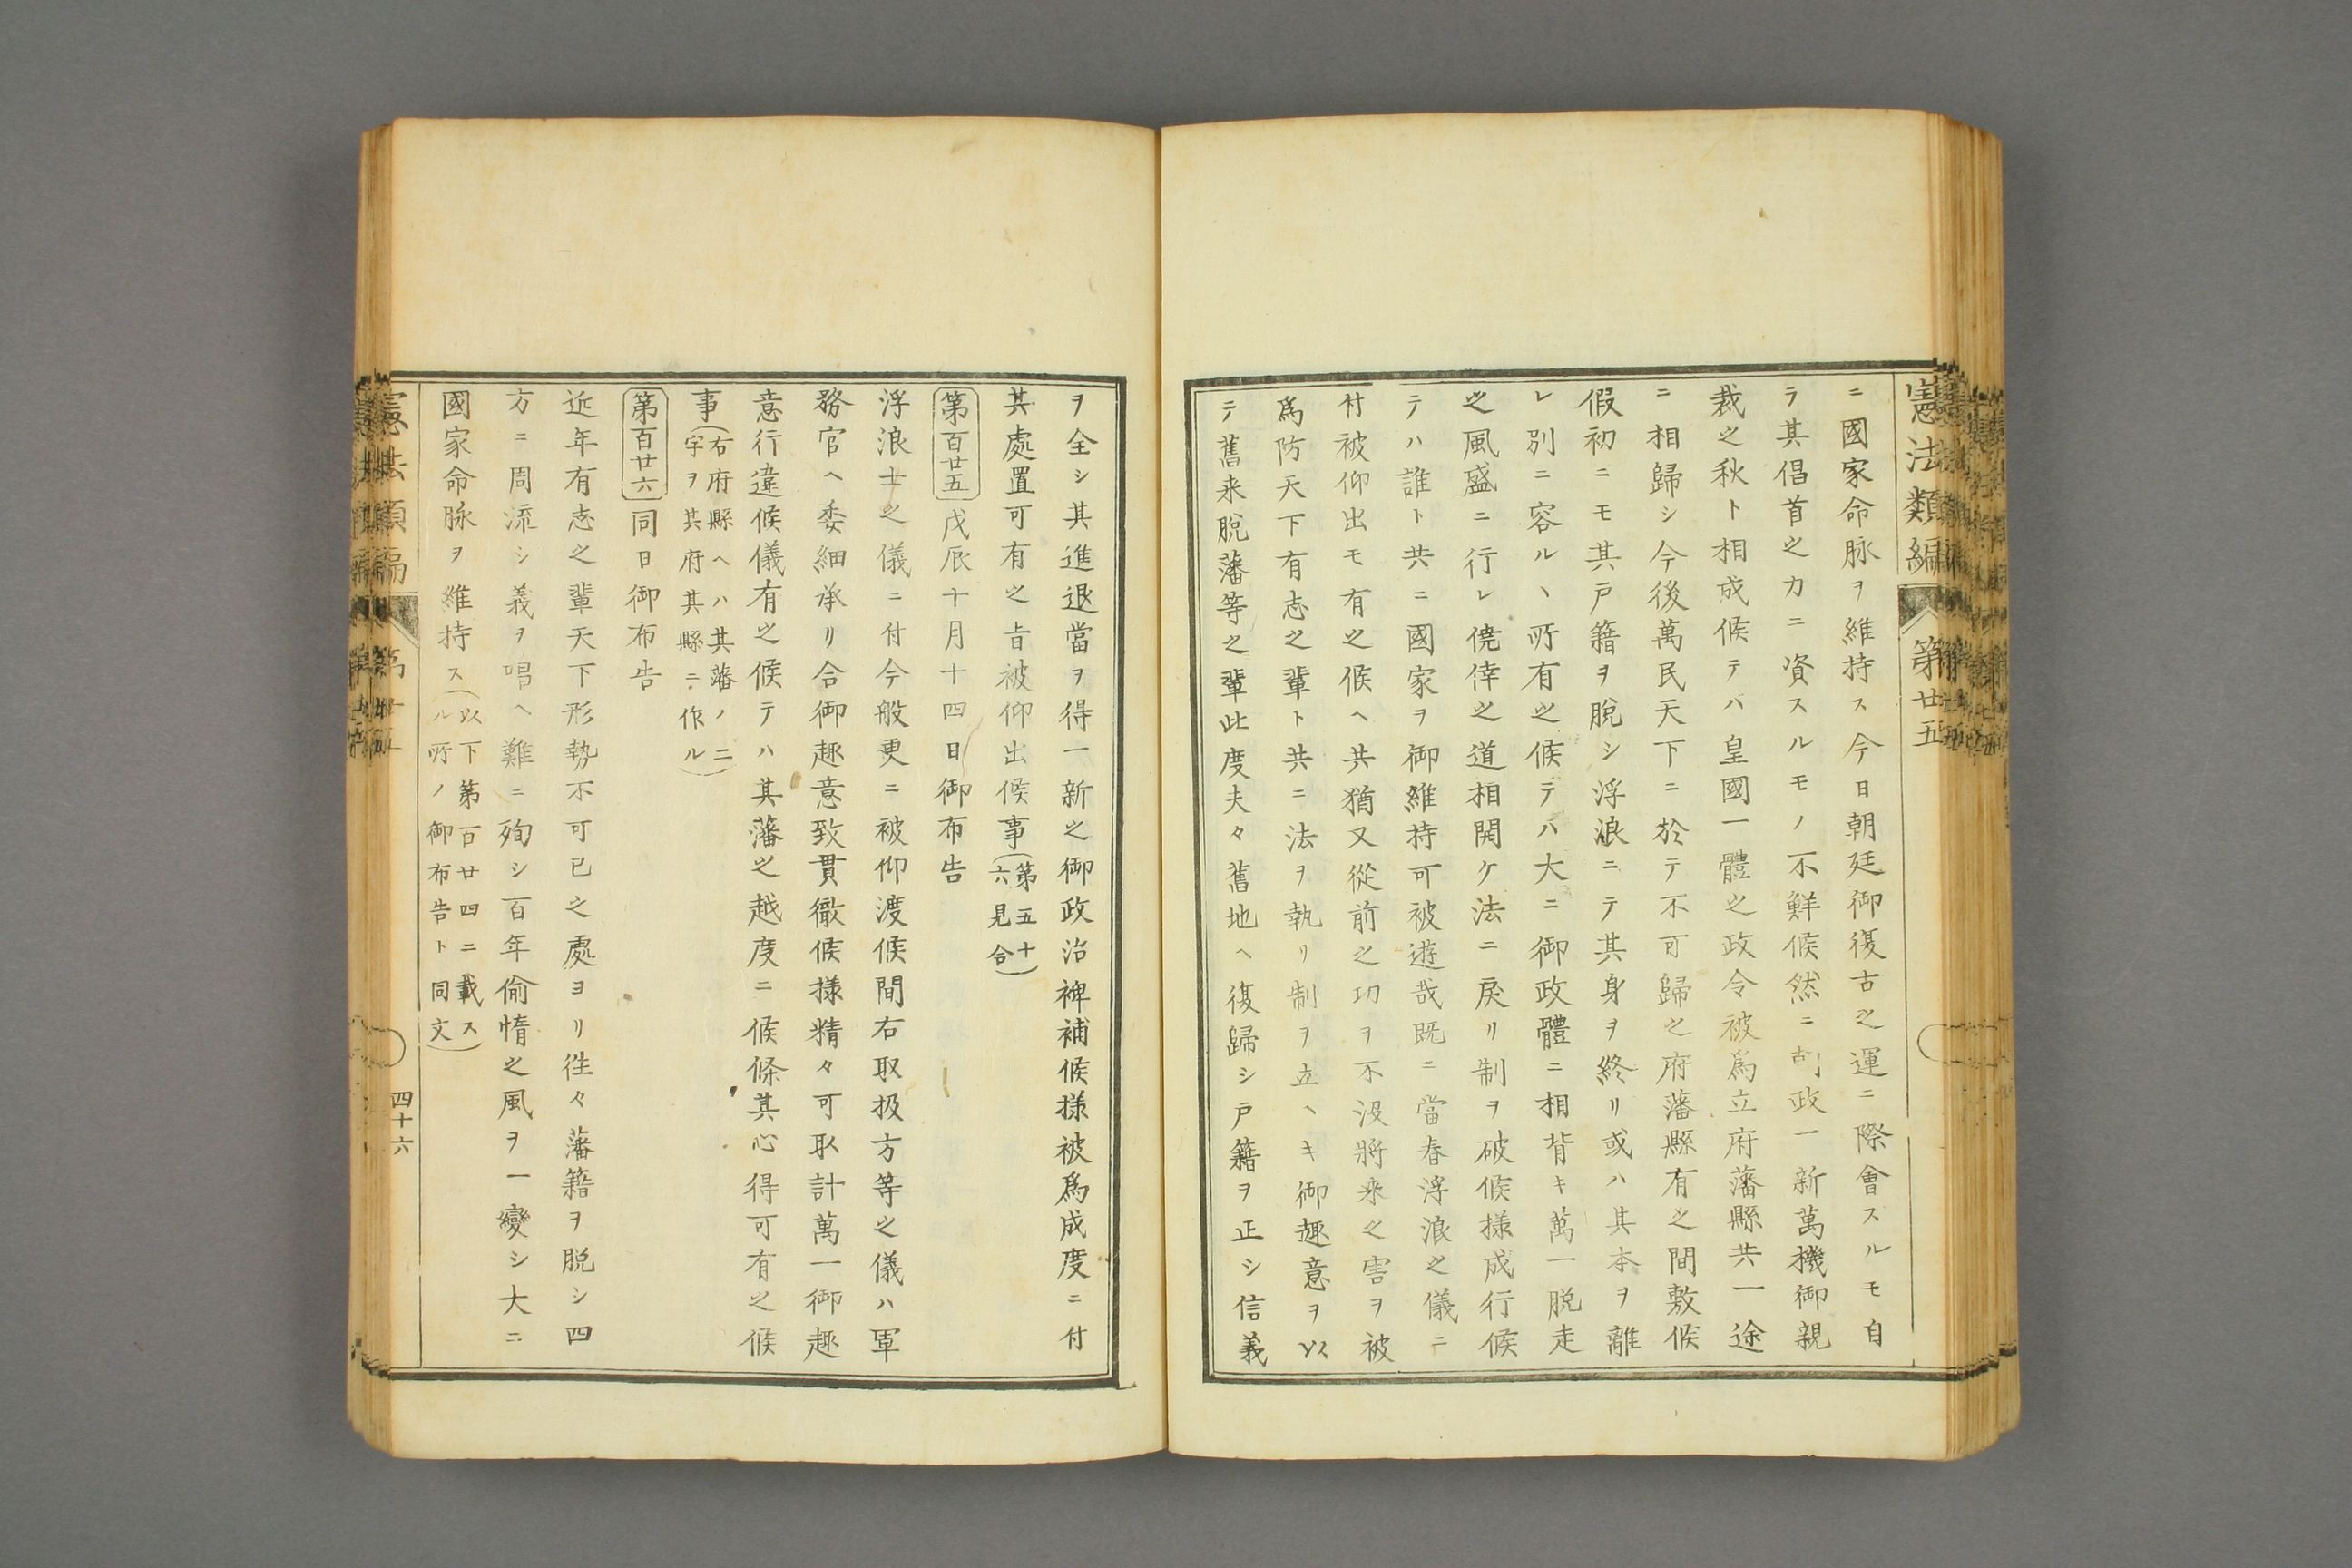 憲法類編 第廿五
ニ國家命脉ヲ維持ス今日朝廷御復古之運ニ際會スルモ自
ラ其倡首之力ニ資スルモノ不鮮候然ニ政一新萬機御親
裁之秋ト相成候テハ皇國一體之政令被爲立府藩縣共一途
ニ相歸シ今後萬民天下ニ於テ不可歸之府藩縣有之間敷候
假初ニモ其戸籍ヲ脱シ浮浪ニテ其身ヲ終リ或ハ其本ヲ離
レ別ニ容ルヽ所有之候テハ大ニ御政體ニ相背キ萬一脱走
之風盛ニ行レ僥倖之道相開ケ法ニ戻リ制ヲ破候様成行候
テハ誰ト共ニ國家ヲ御維持可被遊哉既ニ當春浮浪之儀ニ
付被仰出モ有之候ヘ共猶又從前之功ヲ不沒將來之害ヲ被
爲防天下有志之輩ト共ニ法ヲ執リ制ヲ立ヘキ御趣意ヲ以
テ舊来脱藩等之輩此度夫々舊地ヘ復歸シ戸籍ヲ正シ信義
ヲ全シ其進退當ヲ得一新之御政治裨補候様被爲成度ニ付
其處置可有之旨被仰出候事(第五十
六見合)
第百廿五 戊辰十月十四日御布告
浮浪士之儀ニ付今般更ニ被仰渡候間右取扱方等之儀ハ軍
務官ヘ委細承リ合御趣意致貫徹候様精々可取計萬一御趣
意行違候儀有之候テハ其藩之越度ニ候條其心得可有之候
事(右府縣ヘハ其藩ノ二
字ヲ其府其縣ニ作ル)
第百廿六 同日御布告
近年有志之輩天下形勢不可已之處ヨリ徃々藩籍ヲ脱シ四
方ニ周流シ義ヲ唱ヘ難ニ殉シ百年偷惰之風ヲ一變シ大ニ
國家命脉ヲ維持ス(以下第百廿四ニ載ス
ル所ノ御布告ト同文)
四十六